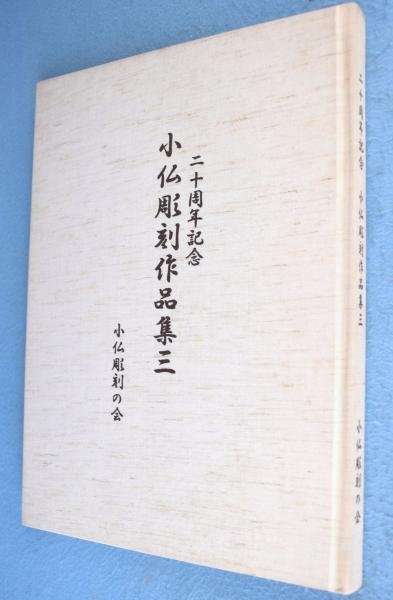 二十周年記念
小仏彫刻作品集三
小仏彫刻の会
二十周年記念 小仏彫刻作品集三 小仏彫刻の会